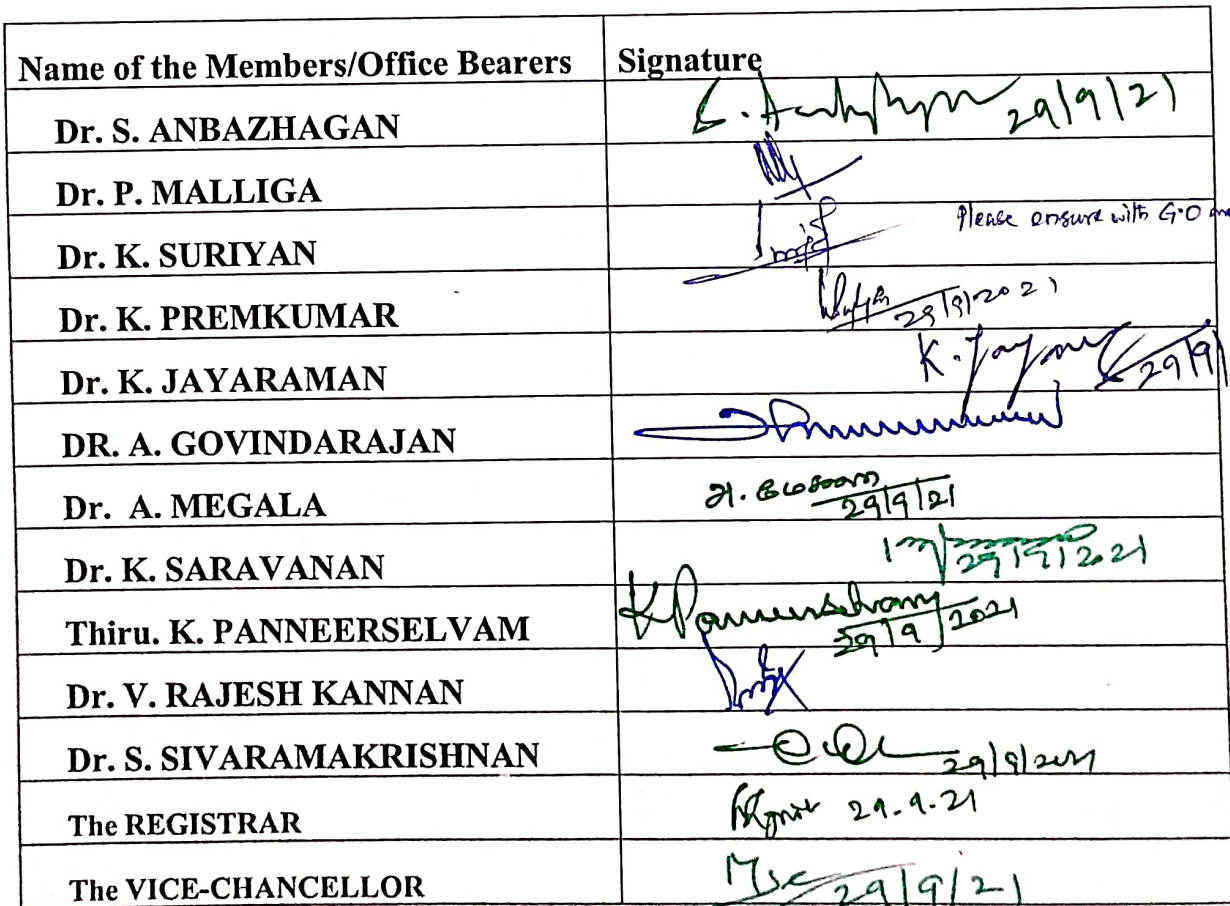 Name of the Members/Office Bearers Signature
Dr. S. ANBAZHAGAN 29/9/21
Dr. P. MALLIGA
Dr. K. SURIYAN Please ensure with G.O
Dr. K. PREMKUMAR 29/9/2021
Dr. K. JAYARAMAN K. 29/9/
DR. A. GOVINDARAJAN
Dr. A. MEGALA அ. மேகலா 29/9/21
Dr. K. SARAVANAN 29/9/2021
Thiru. K. PANNEERSELVAM K Panneerselvam 29/9/2021
Dr. V. RAJESH KANNAN
Dr. S. SIVARAMAKRISHNAN 29/9/2021
The REGISTRAR 29.9.21
The VICE-CHANCELLOR 29/9/21